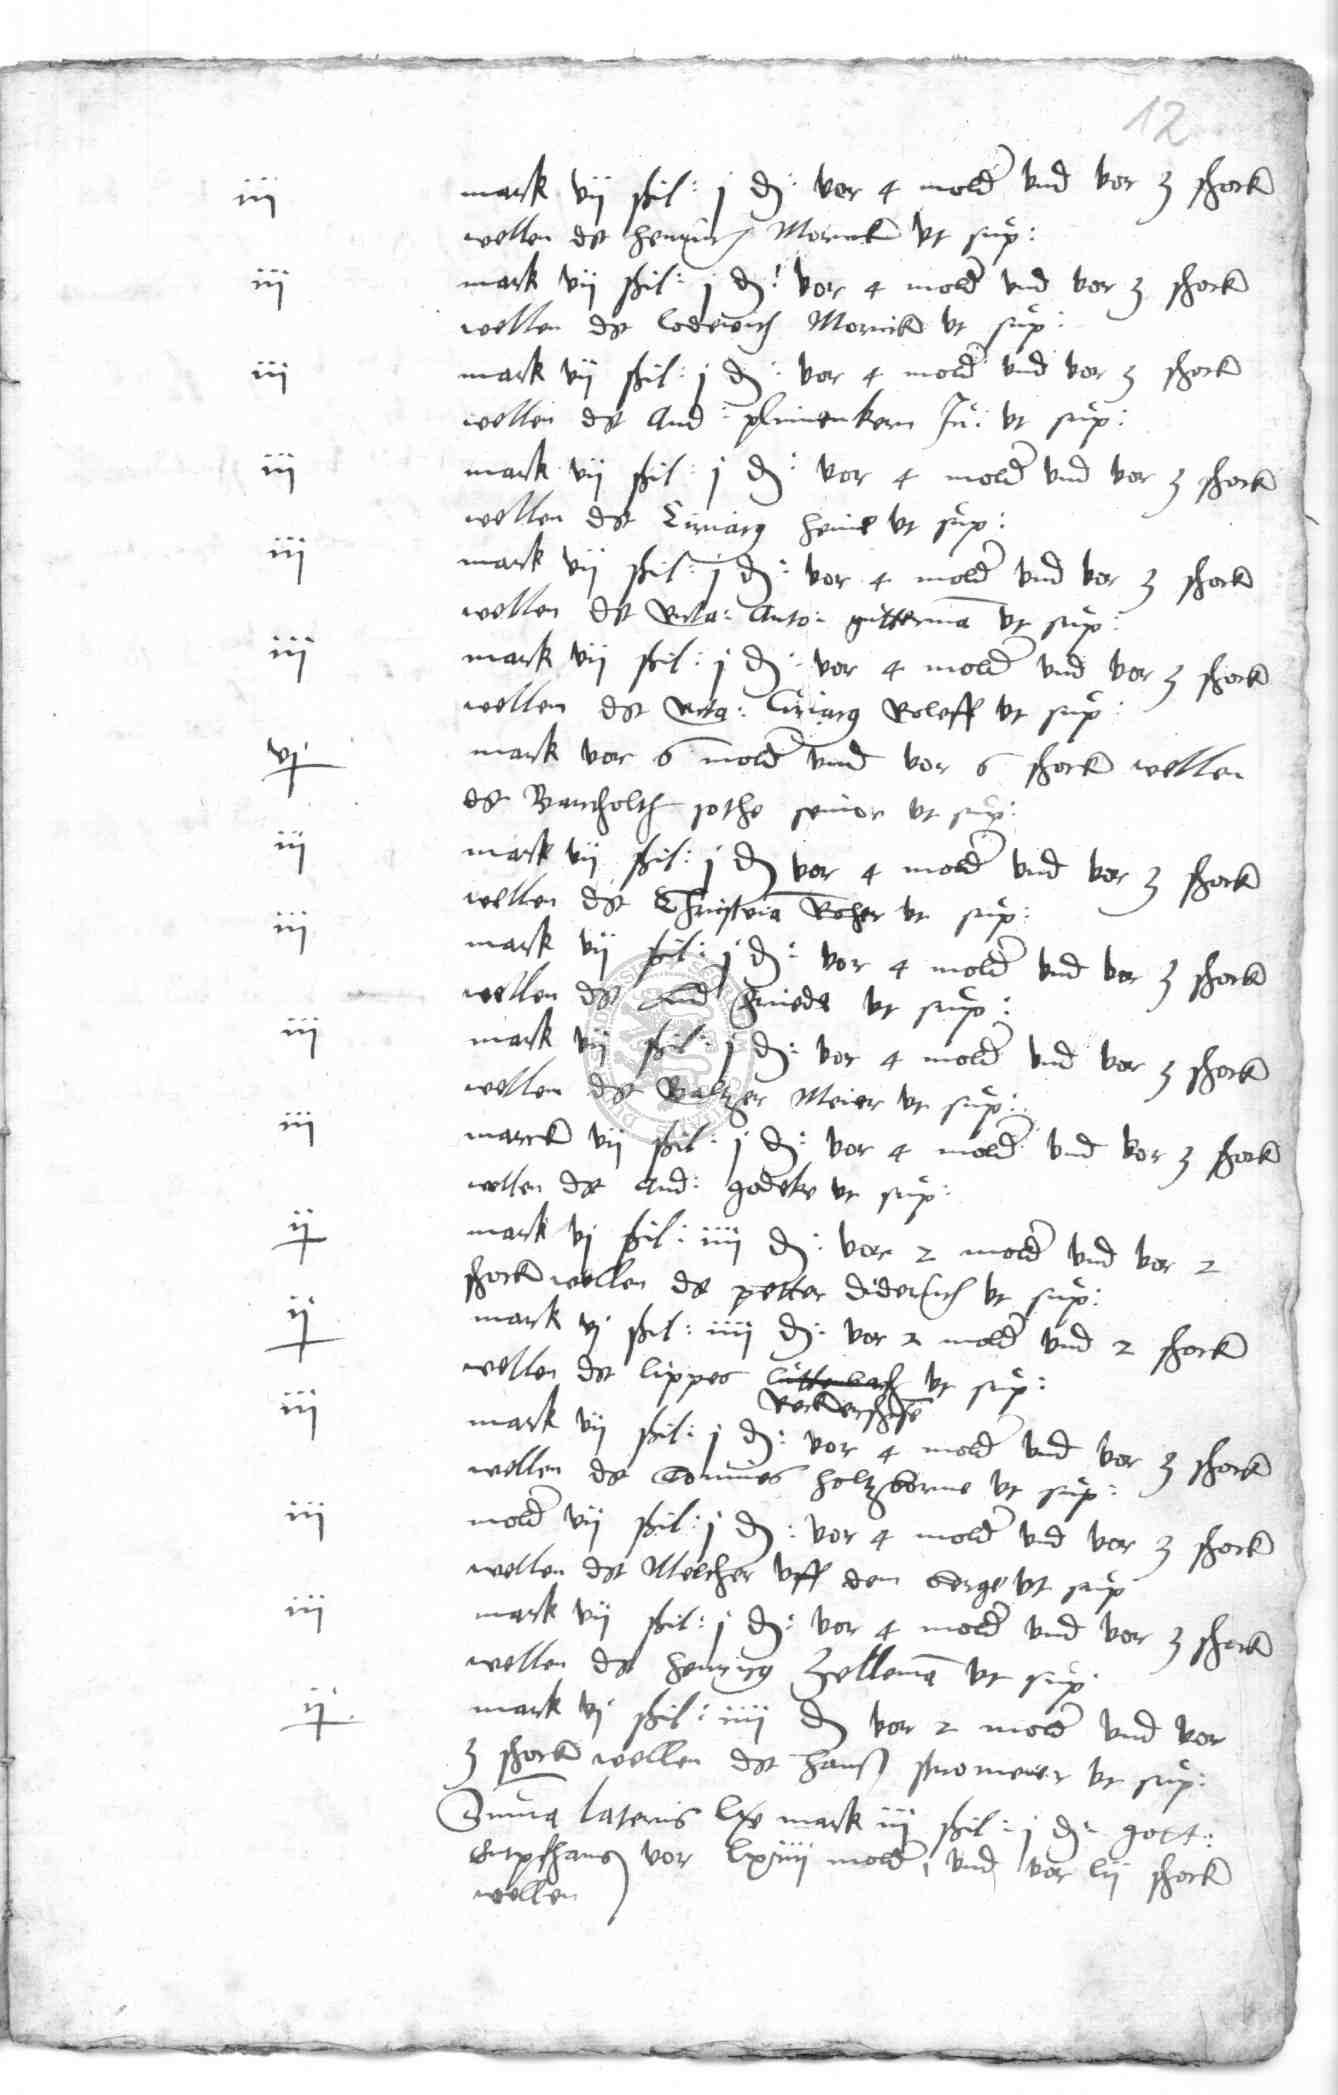 12
iii mark vij ßil: j d: vor 4 mold vnd vor 3 schock
wellen dt Henrich Mornick vt sup:
iij mark vij ßil: j d: vor 4 mold vnd vor 3 schock
wellen dt lodewich Mornick vt sup:
iij mark vij ßil: j d: vor 4 mold vnd vor 3 schock
wellen dt And: plumenkern Ju: vt sup:
iij mark vij ßil: j d: vor 4 mold vnd vor 3 schock
wellen dt Ciriacg heine vt sup:
iij mark vij ßil: j d: vor 4 mold vnd vor 3 schock
wellen dt Rcta: Anto: gutterma vt sup:
iij mark vij ßil: j d: vor 4 mold vnd vor 3 schock
wellen dt Rcta: Ciriacg Roleff vt sup:
vj mark vor 6 mold vnd vor 6 schock wellen
dt Bartholth rothe senior vt sup:
iij mark vij ßil: j d vor 4 mold vnd vor 3 schock
wellen dt Christia Roher vt sup:
iij mark vij ßil: j d: vor 4 mold vnd vor 3 schock
wellen dt And vt sup:
iij mark vij ßil: j d: vor 4 mold vnd vor 3 schock
wellen dt Baltzer Meier vt sup:
iij marck vij ßil: j d: vor 4 mold vnd vor 3 schock
wellen dt And: godeke vt sup:
ij mark vj ßil: iiij d: vor 2 mold vnd vor 2
schock wellen dt petter diderich vt sup:
ij mark vj ßil: iiij d: vor 2 mold vnd 2 schock
wellen dt lippes vt sup:
iij mark vij ßil: j d: vor 4 mold vnd vor 3 schock
wellen dt Tonnies holtzborne vt sup:
iij mold vij ßil: j d: vor 4 mold vnd vor 3 schock
wellen dt Melcher vff dem berge vt sup
iij mark vij ßil: j d: vor 4 mold vnd vor 3 schock
wellen dt Henricg Zellema vt sup:
ij mark vj ßil: iiij d vor 2 mold vnd vor
3 schock wellen dt Hanß stromeier vt sup:
Suma lateris lxv mark iij ßil: j d: gott:
vor lxiiij mold, vnd vor lij schock
wellen